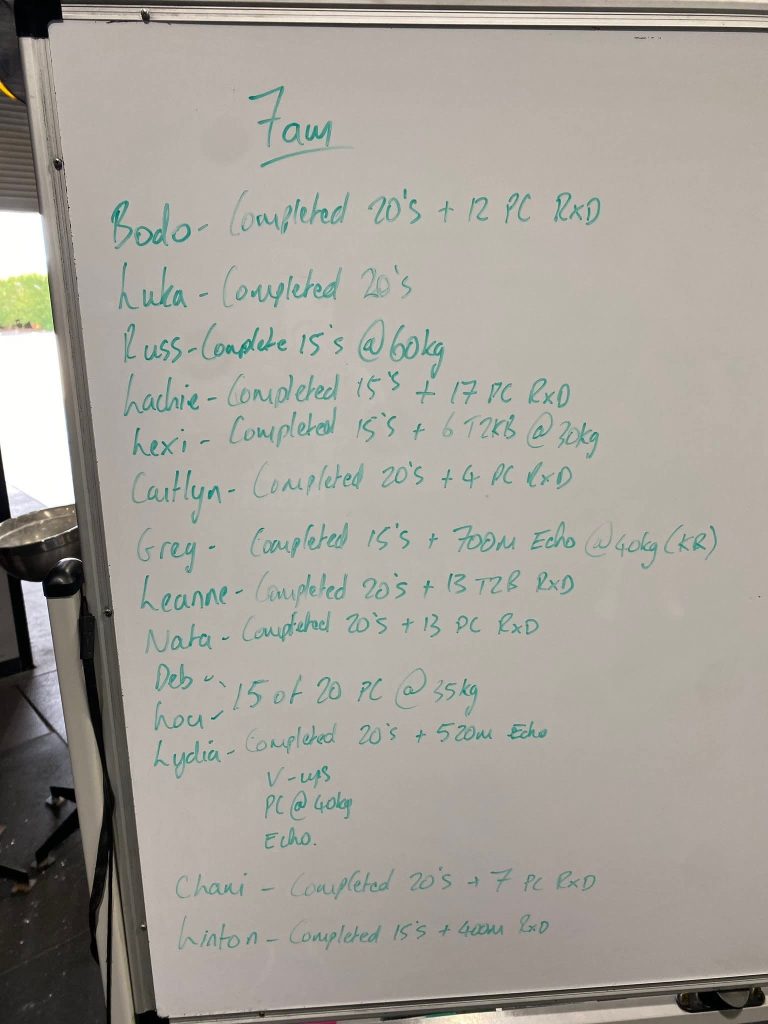 7am
Bodo- Completed 20's + 12 PC RxD
Luka - Completed 20's
Russ- Complete 15's @60kg
Lachie- Completed 15's + 17 PC RxD
Lexi - Completed 15's + 6 T2KB @30kg
Caitlyn- Completed 20's + 4 PC RxD
Greg - Completed 15's + 700m Echo @40kg (KR)
Leanne- Completed 20's + 13 T2B RxD
Nata - Completed 20's + 13 PC RxD
Deb -
Lou - 15 of 20 PC @35kg
Lydia- Completed 20's + 520m Echo
V-ups
PC@40kg
Echo.
Chani - Completed 20's + 7 PC RxD
Linton - Completed 15's + 400m RxD